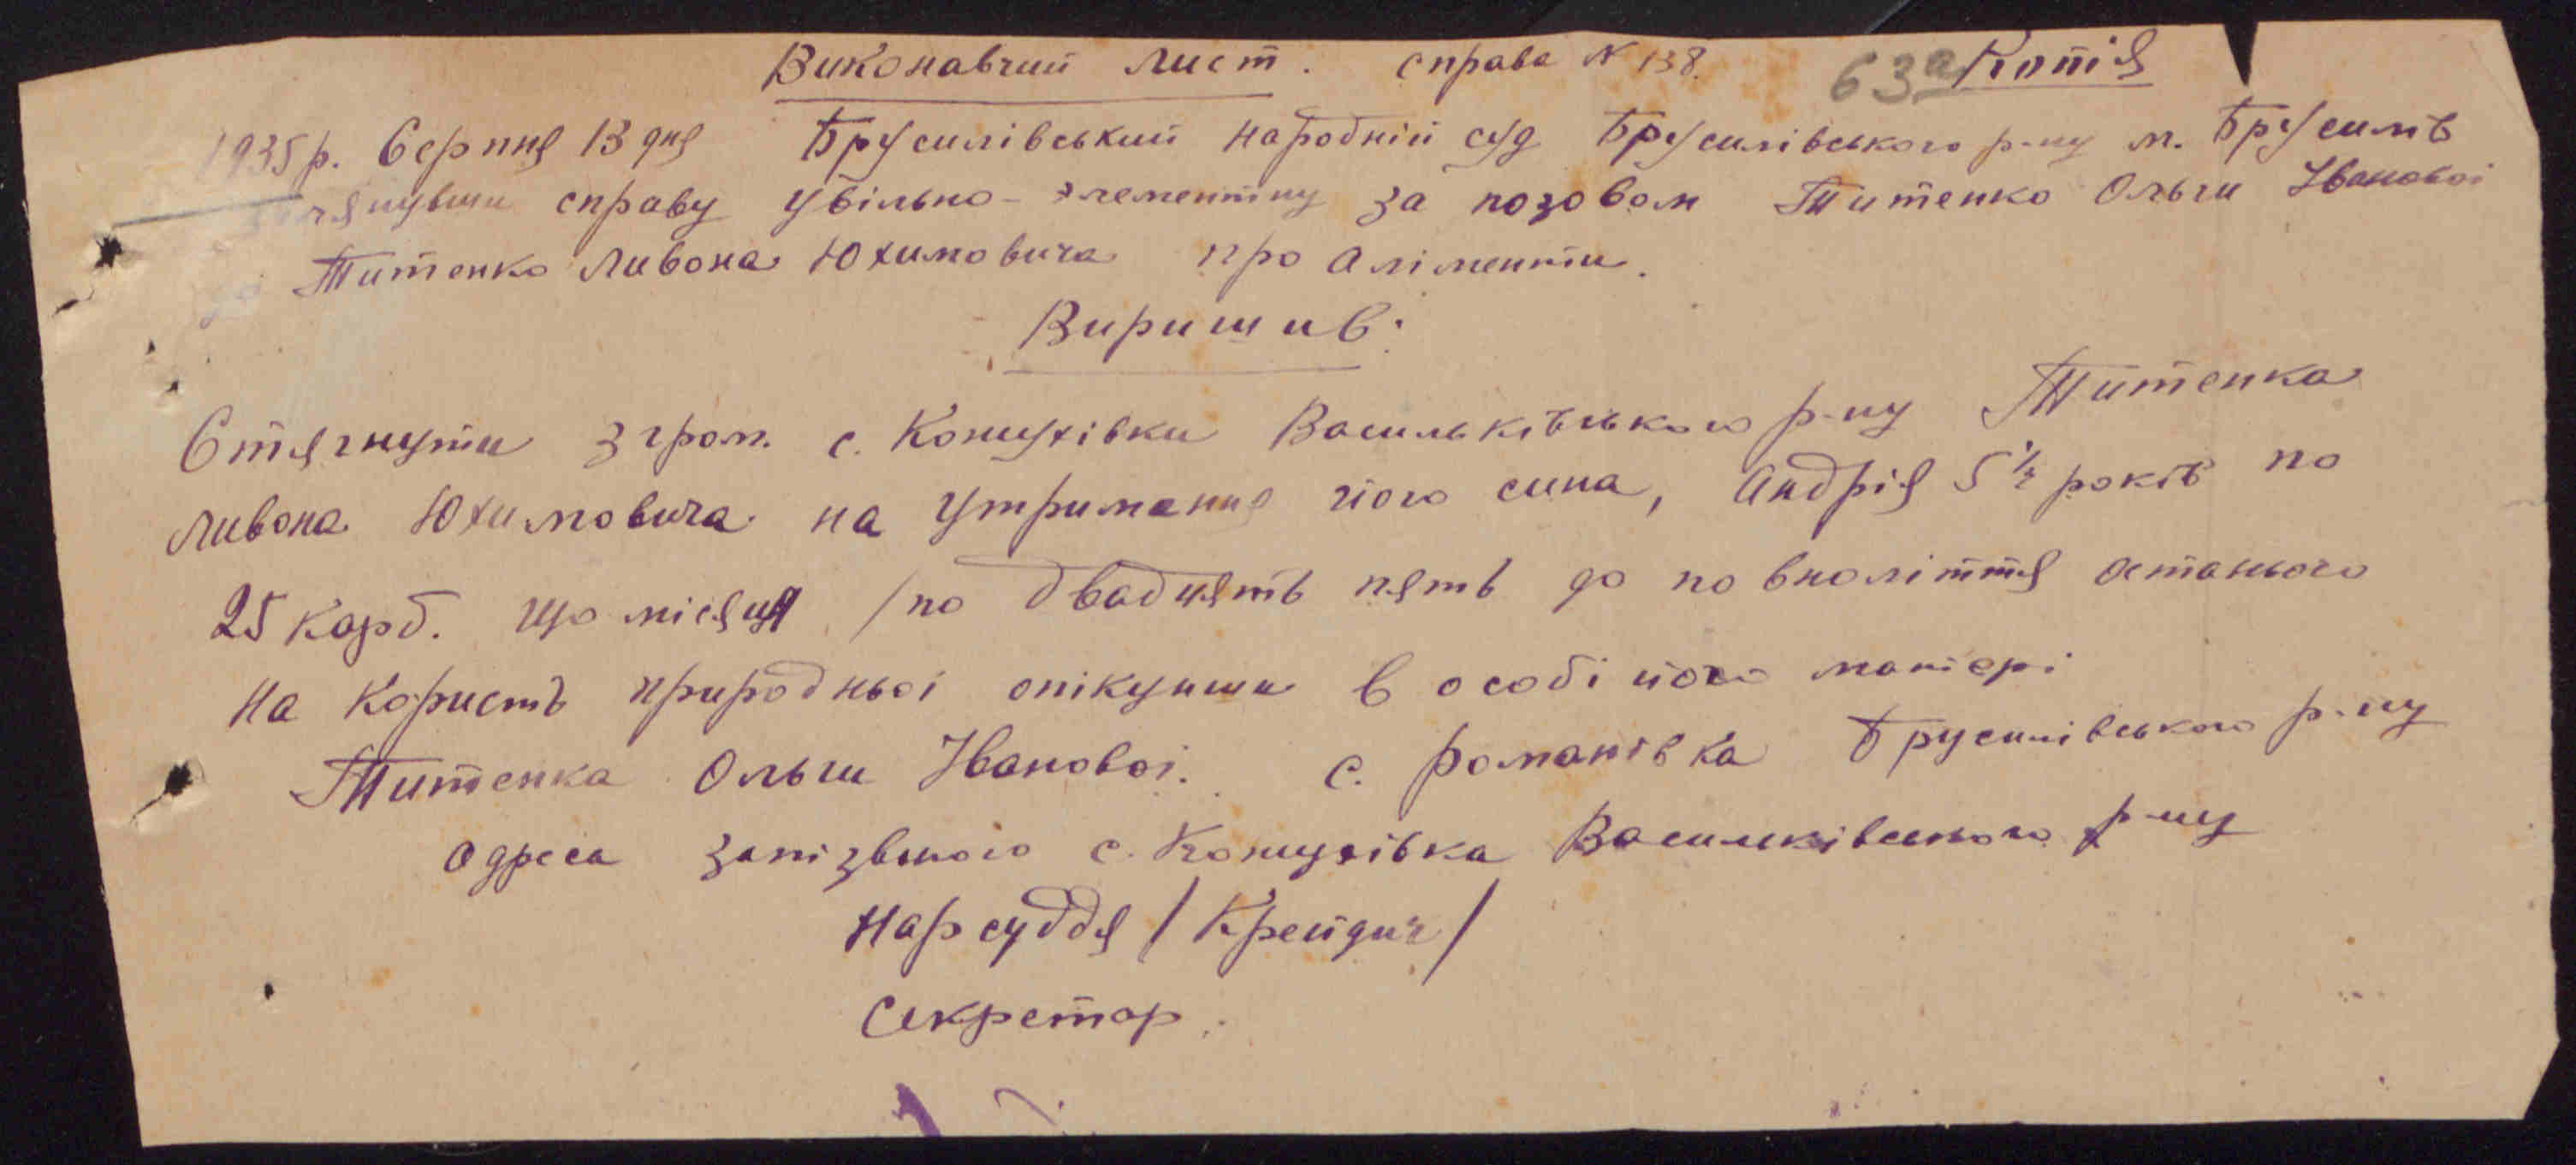 Виконавчий лист. справа N 138. 63а Копія
1935 р. Серпня 13 дня Брусилівський народній суд Брусилівського р-ну м. Брусилів
глянувши справу цвільно-элементну за позовом Титенко Ольги Івановоі
до Титенко Ливона Юхимовича про аліменти.
Виришив:
Стягнути з гром. с. Кожухівки Васильківського р-ну Титенка
Ливона Юхимовича на утримання його сина, Андрія 5 ½ років по
25 карб. що місяця /по двадцять пять до повноліття останього
на користь природньоі опікунши в особі його матері
Титенка Ольги Івановоі. с. Романівка Брусилівського р-ну
Одреса запізвыного с. Кожухівка Васильківського р-ну
Нарсуддя /Крейдич/
Секретар.